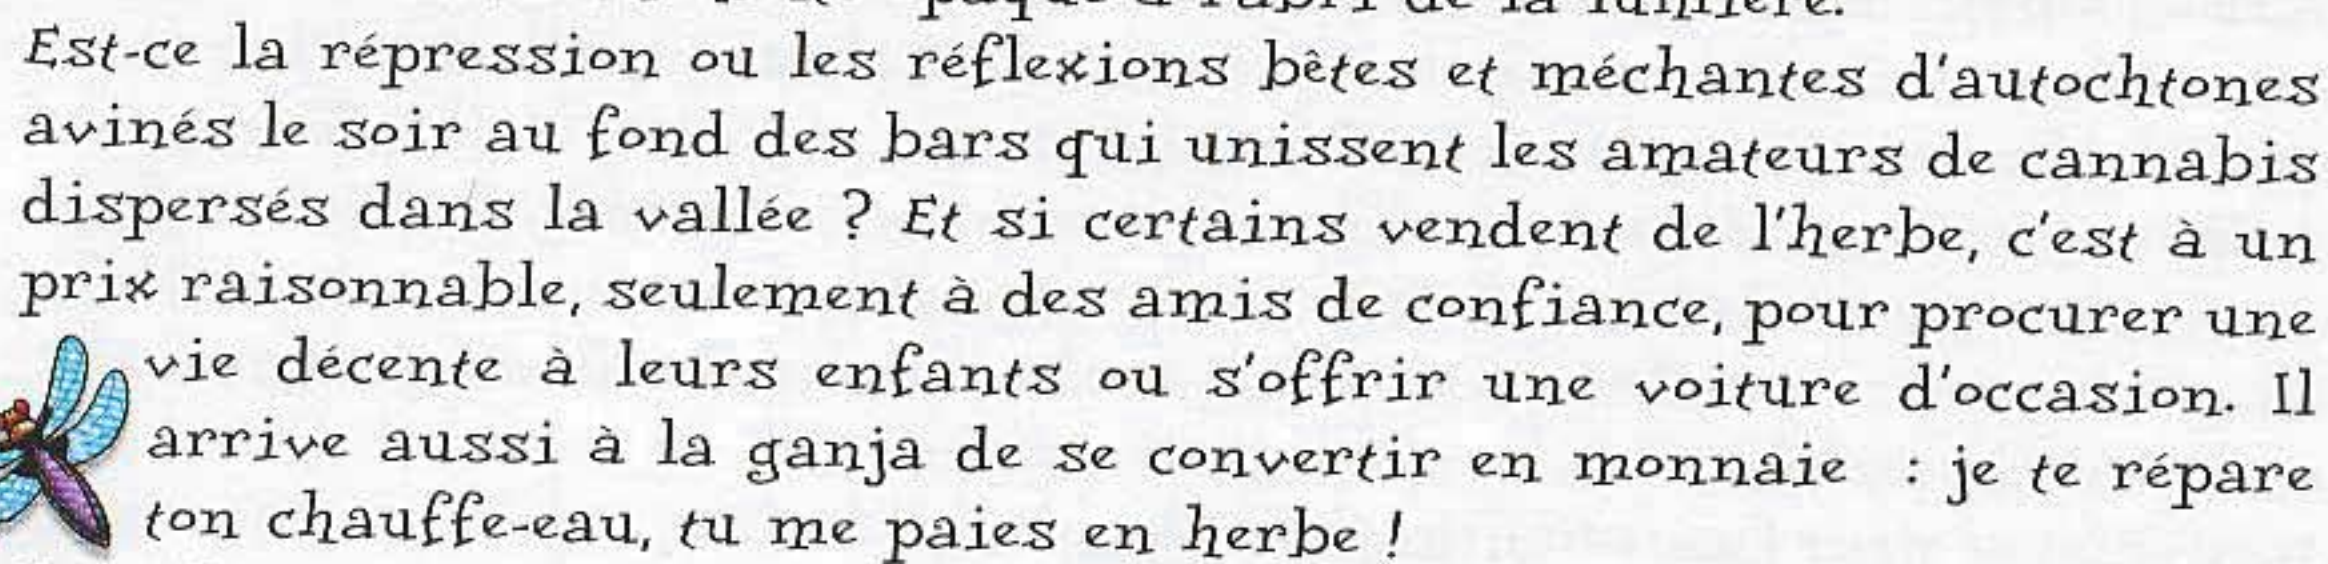 à l'abri de la lumière.
Est-ce la répression ou les réflexions bêtes et méchantes d'autochtones
avinés le soir au fond des bars qui unissent les amateurs de cannabis
dispersés dans la vallée ? Et si certains vendent de l'herbe, c'est à un
prix raisonnable, seulement à des amis de confiance, pour procurer une
vie décente à leurs enfants ou s'offrir une voiture d'occasion. Il
arrive aussi à la ganja de se convertir en monnaie : je te répare
ton chauffe-eau, tu me paies en herbe !